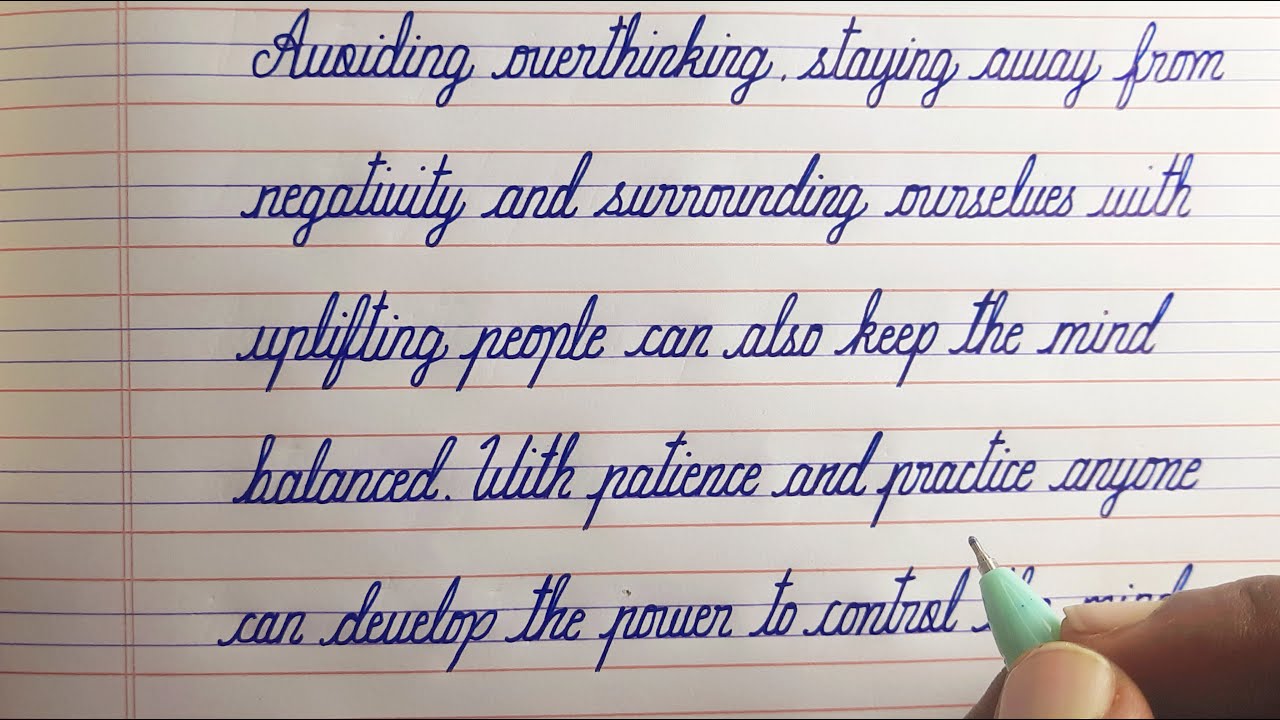 Avoiding overthinking, staying away from
negativity and surrounding ourselves with
uplifting people can also keep the mind
balanced. With patience and practice anyone
can develop the power to control the mind